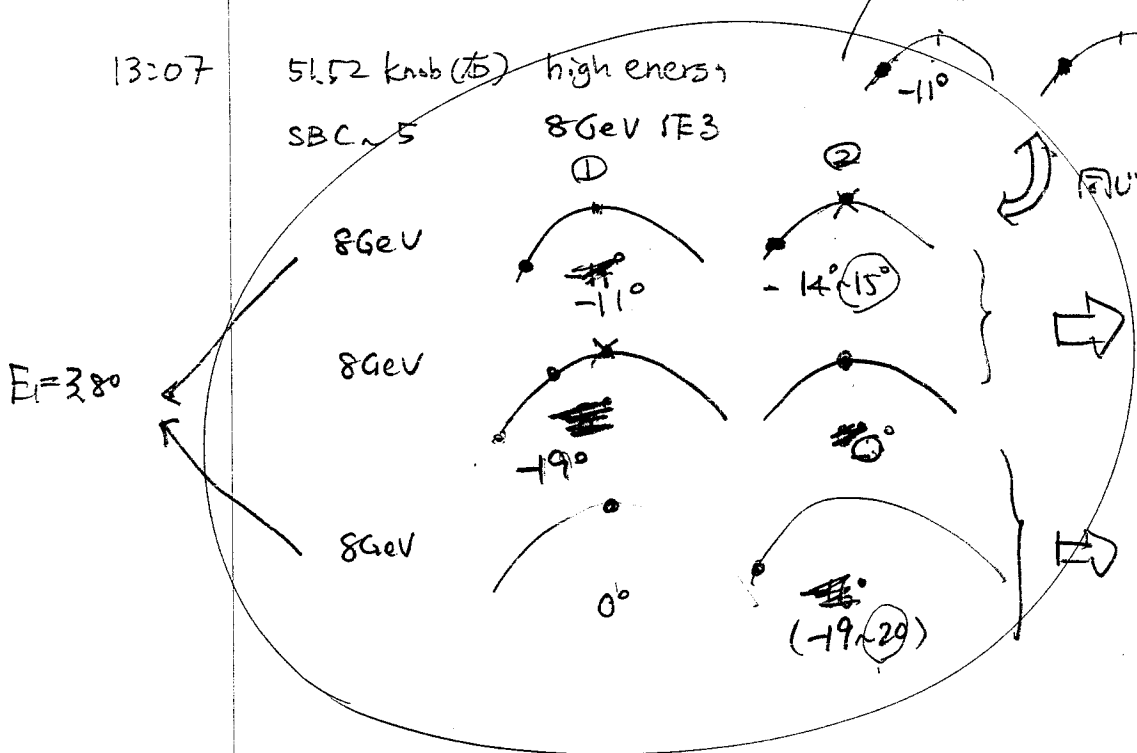 -11°
13:07 51.52 knob (だ) high energy
SBC ~ 5 8GeV 1E3
① ②
同じ
8GeV -11° -14°~15°
E1=3.80
8GeV -19° 0°
8GeV 0° (-19~20)